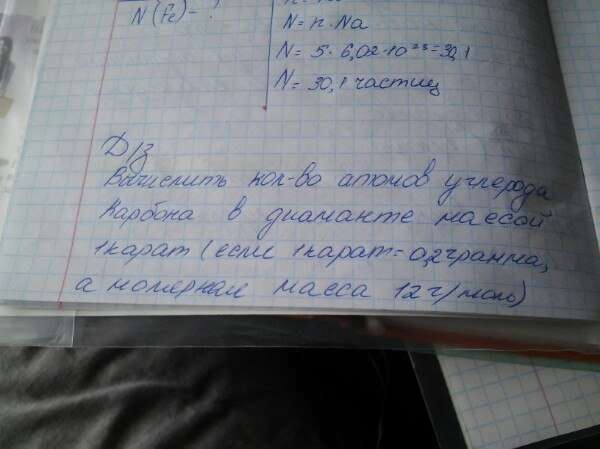 N(fe)-?
N=n·Na
N=5·6,02·10²³=30,1
N=30,1 частиц
Д/з
Вычислить кол-во атомов углерода
Карбона в диаманте массой
1карат (если 1карат=0,2грамма,
а молерная масса 12г/моль)